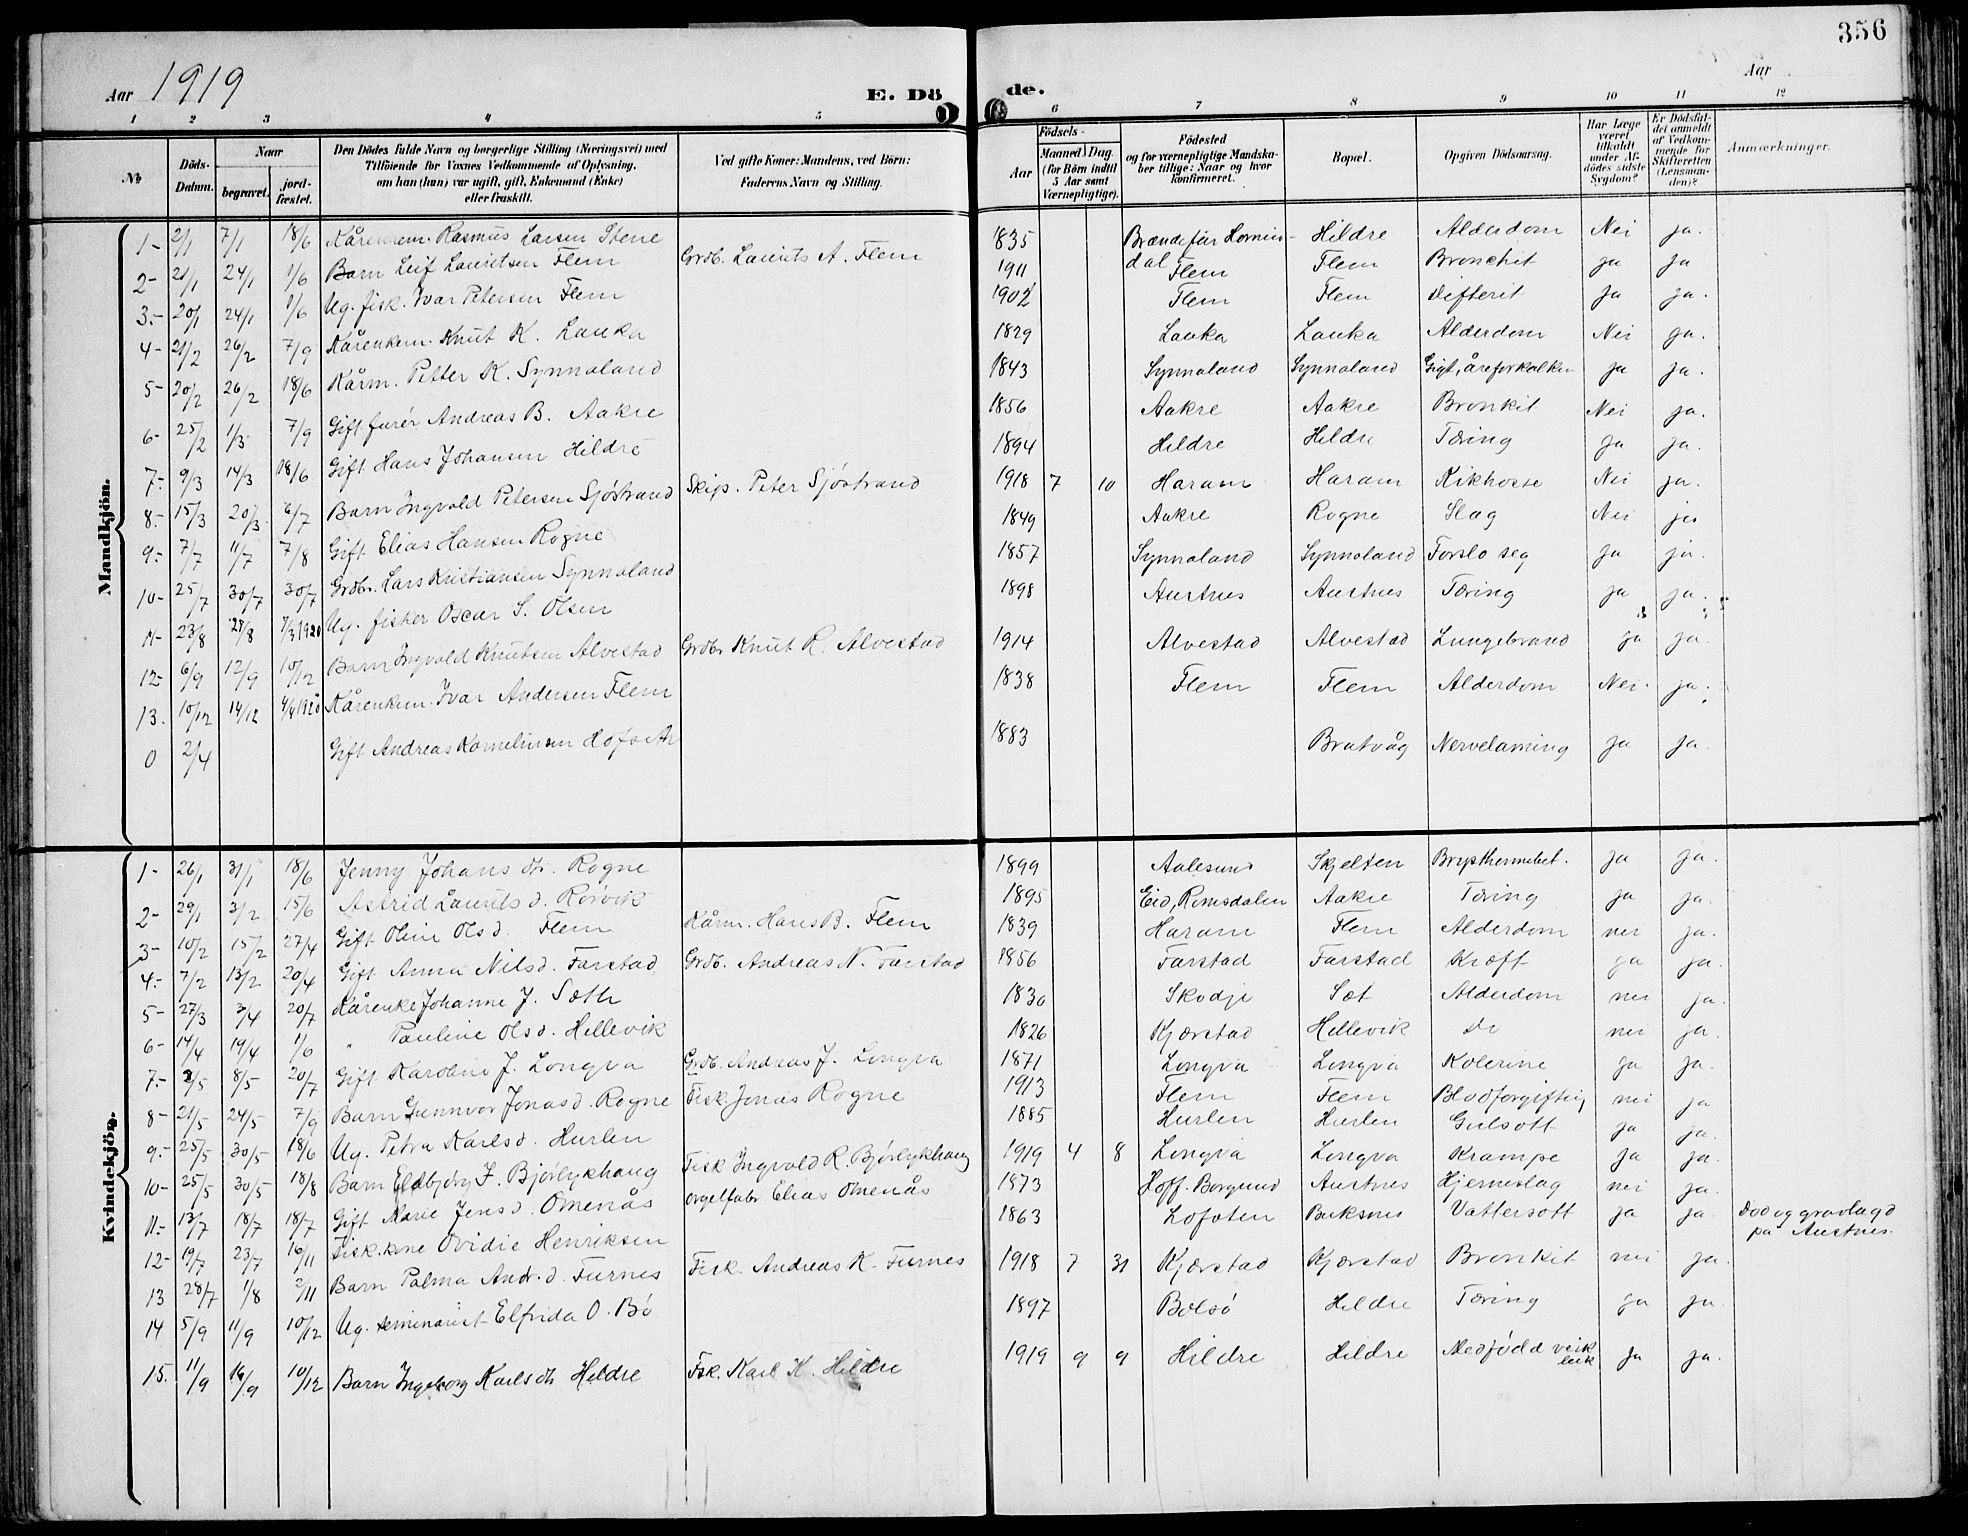 356
Aar 1919
E. Dö
de.
Aar
1 2 3 4 5 6 7 8 9 10 11 12
№
Döds-Datum.
Naar
begravet.
jord-fæstet.
Den Dödes fulde Navn og borgerlige Stilling (Næringsvei) med
Tilföiende for Voxnes Vedkommende af Oplysning,
om han (hun) var ugift, gift, Enkemand (Enke)
eller fraskilt.
Ved gifte Koner: Mandens, ved Börn:
Faderens Navn og Stilling.
Födsels-
Aar
Maaned Dag.
(for Börn indtil
5 Aar samt
Værnepligtige).
Födested
og for værnepligtige Mandska-
ber tillige: Naar og hvor
konfirmeret.
Bopæl.
Opgiven Dödsaarsag.
Har Læge
været
tilkaldt
under Af-
dödes sidste
Sygdom?
Er Dödsfal-
det anmeldt
af Vedkom-
mende for
Skifteretten
(Lensman-
den)?
Anmærkninger.
Mandkjön.
1- 2/1 7/1 18/6 Kårenkem. Rasmus Larsen Stene 1835 Brændefür Hornin-dal Hildre Alderdom Nei ja.
2- 21/1 24/1 1/6 Barn Leif Lauritsen Flem Grdb. Laurits A. Flem 1911 Flem Flem Bronchit ja ja
3.- 20/1 24/1 1/6 Ug. fisk. Ivar Petersen Flem 1902 Flem Flem Difterit ja ja.
4- 21/2 26/2 7/9 Kårenkem. Knut K. Lauka 1829 Lauka Lauka Alderdom Nei ja.
5- 20/2 26/2 18/6 Kårm. Petter K. Synnaland 1843 Synnaland Synnaland Gigt, åreforkalken ja ja.
6- 25/2 1/3 7/9 Gift furér Andreas B. Aakre 1856 Aakre Aakre Bronkit Nei ja.
7.- 9/3 14/3 18/6 Gift Hans Johansen Hildre 1894 Hildre Hildre Tæring ja ja.
8.- 15/3 20/3 6/7 Barn Ingvald Petersen Sjøstrand Skips. Peter Sjøstrand 1918 7 10 Haram Haram Kikhoste Nei ja.
9.- 7/7 11/7 7/8 Gift Elias Hansen Rogne 1849 Aakre Rogne Slag Nei ja
10- 25/7 30/7 30/7 Grdbr. Lars Kristiansen Synnaland 1857 Synnaland Synnaland Forslo seg ja ja.
11- 23/8 28/8 7/3 1920 Ug. fisker Oscar S. Olsen 1898 Austnes Austnes Tæring ja ja.
12- 6/9 12/9 10/12 Barn Ingvald Knutsen Alvestad Grdbr Knut R. Alvestad 1914 Alvestad Alvestad Lungebrand ja ja.
13. 10/12 14/12 4/4 1920 Kårenkem. Ivar Andersen Flem 1838 Flem Flem Alderdom Nei. ja.
0 2/4 Gift Andreas Korneliusen Hofseth 1883 Bratvåg Nervelaming ja ja.
Kvindekjön.
1- 26/1 31/1 18/6 Jenny Johans dtr. Rogne 1899 Aalesund Skjelten Brysthinnebet. ja ja.
2- 29/1 3/2 15/6 Astrid Laurits d. Rørvik 1895 Eid, Romsdalen Aakre Tæring ja ja.
3- 10/2 15/2 27/4 Gift Oline Ols d. Flem Kårm. Hans B. Flem 1839 Haram Flem Alderdom nei ja.
4.- 7/2 13/2 20/4 Gift Anna Nilsd. Farstad Grdb. Andreas N. Farstad 1856 Farstad Farstad Kræft ja ja.
5- 27/3 3/4 20/7 Kårenke Johanne J. Sæth 1830 Skodje Sæt Alderdom nei ja.
6- 14/4 19/4 1/6 " Pauline Olsd. Hellevik 1826 Kjærstad Hellevik do nei ja.
7.- 3/5 8/5 20/7 Gift Karoline J. Longva Grdb. Andreas J. Longva 1871 Longva Longva Kolerine ja ja.
8- 21/5 24/5 7/9 Barn Gunnvor Jonasd. Rogne Fisk Jonas Rogne 1913 Flem Flem Blodforgifting nei ja
9.- 25/5 30/5 18/6 Ug. Petra Karlsd. Hurlen 1885 Hurlen Hurlen Gulsott ja ja.
10- 25/5 30/5 18/8 Barn Eldbjørg I. Bjørlykhaug Fisk Ingvald R. Bjørlykhaug 1919 4 8 Longva Longva Krampe ja ja.
11.- 13/7 18/7 18/7 Gift Marie Jens d. Omenås orgelfabr. Elias Omenås 1873 Hoff. Borgund Austnes Hjerneslag nei ja.
12- 19/7 23/7 16/11 Fisk.kone Ovidie Henriksen 1863 Lofoten Buksnes Vattersott ja ja. Død og gravlagd på Austnes.
13 28/7 1/8 2/11 Barn Palma Andr. d. Furnes Fisk. Andreas K. Furnes 1918 7 31 Kjærstad Kjærstad Bronkit nei ja.
14 5/9 11/9 10/12 Ug. seminarist Elfrida O. Bø 1897 Bolsø Hildre Tæring ja ja.
15. 11/9 16/9 10/12 Barn Ingeborg Karlsdtr Hildre Fsk. Karl K. Hildre 1919 9 9 Hildre Hildre Medfødd veikleik ja ja.